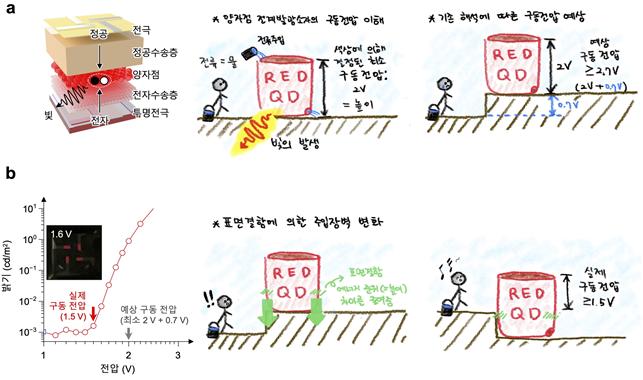 a
전극
정공
정공수송층
양자점
전자수송층
투명전극
빛
전자
* 양자점 전계발광소자의 구동전압 이해
전류주입
전류 = 물
RED
QD
색상에 의해
결정된 최소
구동전압:
2V
= 높이
빛의 발생
* 기존 해석에 따른 구동전압 예상
RED
QD
2V
예상
구동 전압
≥2.7V
(2V + 0.7V)
0.7V
b
밝기 (cd/m²)
10¹
10⁰
10⁻¹
10⁻²
10⁻³
1.6 V
실제
구동 전압
(1.5 V)
예상 구동 전압
(최소 2 V + 0.7 V)
1
2
3
전압 (V)
* 표면결함에 의한 주입장벽 변화
!!
RED
QD
표면결함
에너지 준위(=높이)
차이를 줄여줌
RED
QD
실제
구동전압
≥1.5V